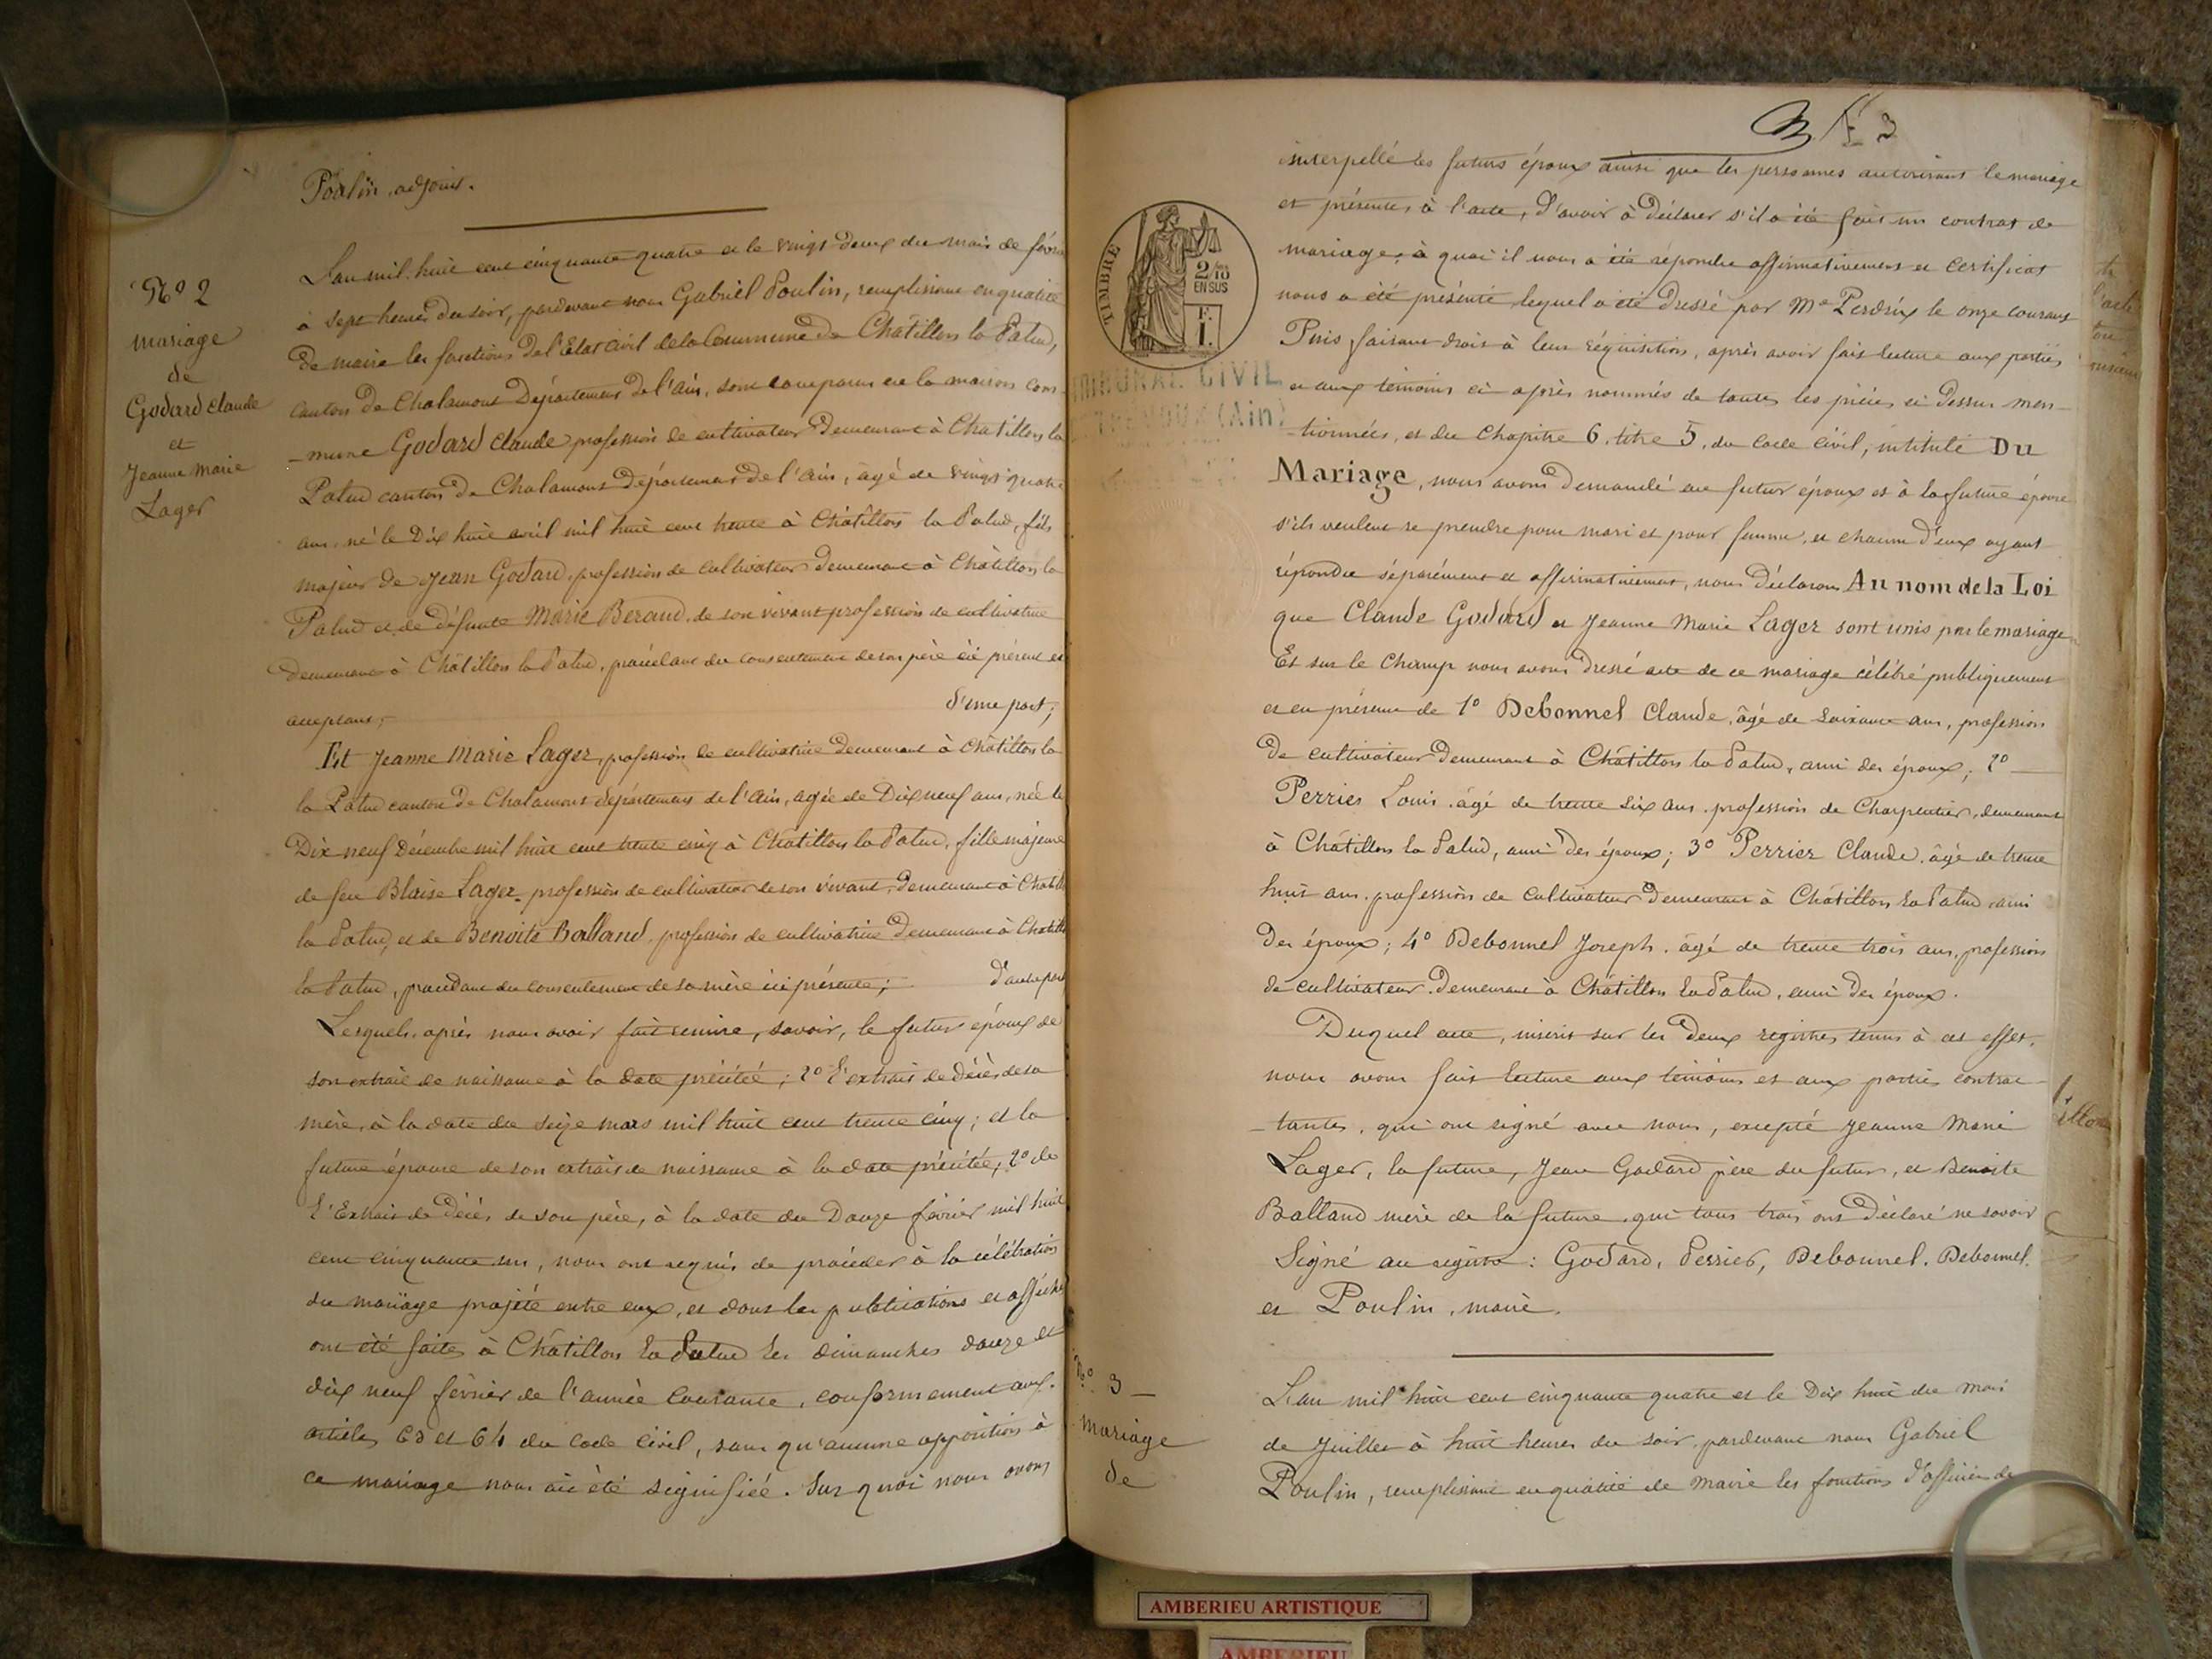 Poulin adjoint.
Nº 2
mariage
de
Godard Claude
et
Jeanne Marie
Lager
L'an mil huit cent cinquante quatre et le vingt deux du mois de févri
à sept heures du soir, pardevant nous Gabriel Poulin, remplissant en qualité
de maire les fonctions de l'Etat Civil de la Commune de Châtillon la Palud,
canton de Chalamont Département de l'ain, sont comparus en la maison com-
-mune Godard Claude profession de cultivateur demeurant à Chatillon la
Palud canton de Chalamont Département de l'ain, âgé de vingt quatre
ans, né le Dix huit avril mil huit cent trente à Châtillon la Palud, fils
majeur de Jean Godard, profession de cultivateur demeurant à Châtillon la
Palud et de défunte Marie Beraud, de son vivant profession de cultivatrice
demeurant à Châtillon la Palud, procédant du consentement de son père ici présent et
acceptant; d'une part;
Et Jeanne Marie Lager, profession de cultivatrice demeurant à Châtillon la
la Palud canton de Chalamont département de l'ain, agée de Dix neuf ans, née le
Dix neuf Décembre mil huit cent trente cinq à Châtillon la Palud, fille majeure
de feu Blaise Lager profession de cultivateur de son vivant, demeurant à Chatill
la Palud, et de Benoite Balland, profession de cultivatrice demeurant à Chatill
la Palud, procédant du consentement de sa mère ici présente; d'autre part
Lesquels, après nous avoir fait remise, savoir, le futur époux de
son extrait de naissance à la date précitée; 2º l'extrait de Décès de sa
mère, à la date du seize mars mil huit cent trente cinq; et la
future épouse de son extrait de naissance à la date précitée; 2º de
l'Extrait de Décès de son père, à la date du Douze février mil huit
cent cinquante un, nous ont requis de procéder à la célébration
du mariage projeté entre eux, et dont les publications et affiches
ont été faites à Châtillon la Palud les dimanches douze et
dix neuf février de l'année courante, conformement aux
articles 63 et 64 du Code Civil, sans qu'aucune opposition à
ce mariage nous ait été signifiée. Sur quoi nous avons
3
TIMBRE
2 10
EN SUS
F.
1.
TRIBUNAL CIVIL
TREVOUX (Ain)
interpellé les futurs époux ainsi que les personnes autorisant le mariage
et présentes à l'acte, d'avoir à déclarer s'il a été fait un contrat de
mariage, à quoi il nous a été répondu affirmativement et certificat
nous a été présenté lequel a été dressé par Me Perdrix le onze courant
Puis, faisant droit à leur réquisition, après avoir fait lecture aux parties
et aux témoins ci après nommés de toutes les pièces ci dessus men-
-tionnées, et du Chapitre 6, titre 5, du Code Civil, intitulé Du
Mariage, nous avons demandé au futur époux et à la future épouse
s'ils veulent se prendre pour mari et pour femme, et chacun d'eux ayant
répondu séparément et affirmativement, nous déclarons Au nom de la Loi
que Claude Godard et Jeanne Marie Lager sont unis par le mariage
Et sur le Champ nous avons dressé acte de ce mariage célébré publiquement
et en présence de 1º Debonnel Claude, âgé de soixante ans, profession
de cultivateur demeurant à Châtillon la Palud, ami des époux; 2º
Perrier Louis, âgé de trente six ans, profession de Charpentier, demeurant
à Châtillon la Palud, ami des époux; 3º Perrier Claude, âgé de trente
huit ans, profession de Cultivateur demeurant à Châtillon la Palud, ami
des époux; 4º Debonnel Joseph, âgé de trente trois ans, profession
de cultivateur, demeurant à Châtillon la Palud, ami des époux.
Duquel acte, inscrit sur les deux registres tenus à cet effet,
nous avons fait lecture aux témoins et aux parties contrac-
-tantes, qui ont signé avec nous, excepté Jeanne Marie
Lager, la future, Jean Godard père du futur, et Benoite
Balland mère de la future, qui tous trois ont Déclaré ne savoir
Signé au registre: Godard, Perrier, Debonnel, Debonnel,
et Poulin, maire.
Nº 3
mariage
de
L'an mil huit cent cinquante quatre et le Dix huit du mois
de Juillet à huit heures du soir, pardevant nous Gabriel
Poulin, remplissant en qualité de Maire les fonctions d'officier de
AMBERIEU ARTISTIQUE
AMBERIEU